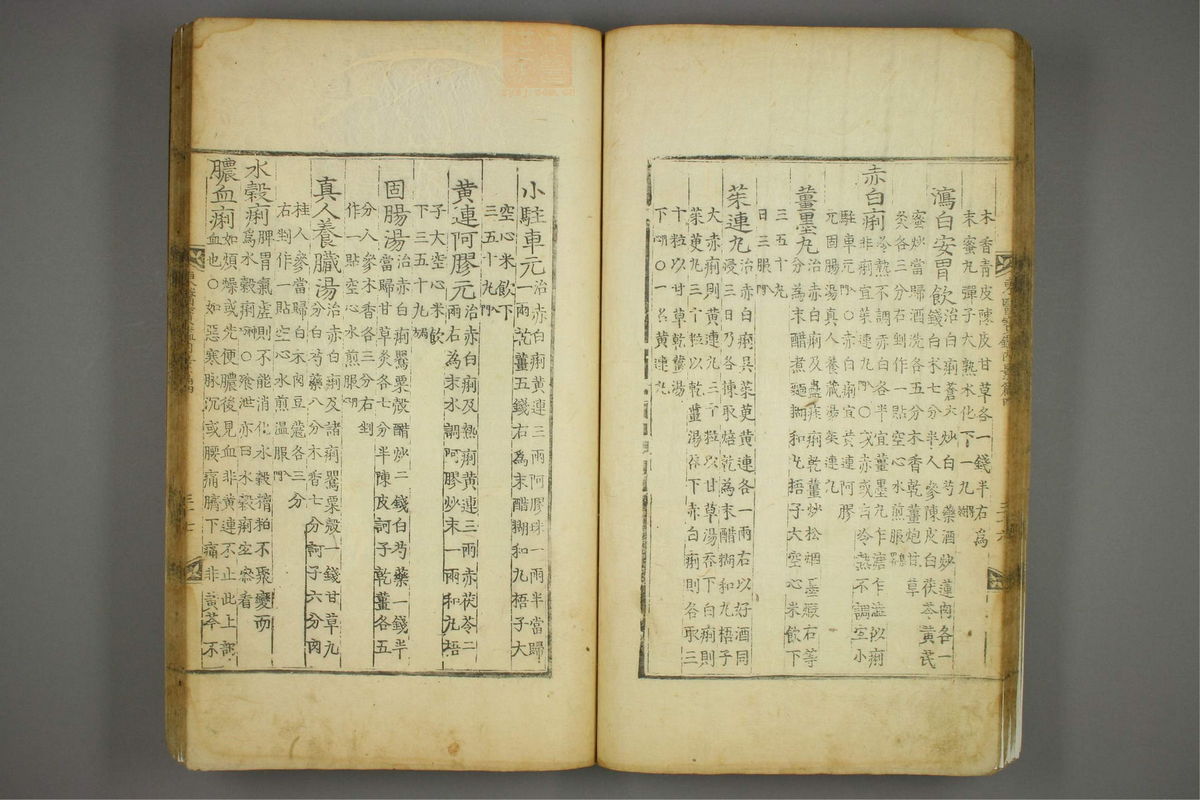 木香青皮陳皮甘草各一錢半右爲
末蜜丸彈子大熟水化下一丸
瀉白安胃飮
治白痢蒼朮炒白芍藥酒炒蓮肉各一
錢白朮七分半人參陳皮白茯苓黃芪
蜜炒當歸酒洗各五分木香乾薑炮甘草
灸各三分右剉作一貼空心水煎服
赤白痢
冷熱不調赤白各半宜薑墨丸乍澁乍滋似痢
非痢宜茱連丸○或赤或白冷熱不調宜小
駐車元○赤白痢宜黃連阿膠
元固腸湯眞人養藏湯茱連丸
薑墨丸
治赤白痢及蠱疾痢乾薑炒松烟墨煅右等
分爲末醋煮麪糊和丸梧子大空心米飮下
三五十丸
日三服
茱連丸
治赤白痢吳茱萸黃連各一兩右以好酒同
浸三日乃各揀取焙乾爲末醋糊和丸梧子
大赤痢則黃連丸三十粒以甘草湯呑下白痢則
茱萸丸三十粒以乾薑湯呑下赤白痢則各取三
十粒以甘草乾薑湯
下○一名黃連丸
小駐車元
治赤白痢黃連三兩阿膠珠一兩半當歸
一兩乾薑五錢右爲末醋糊和丸梧子大
空心米飮下
三五十丸
黃連阿膠元
治赤白痢及熱痢黃連三兩赤茯苓二
兩右爲末水調阿膠炒末一兩和丸梧
子大空心米飮
下三五十丸
固腸湯
治赤白痢罌粟殼醋炒二錢白芍藥一錢半
當歸甘草灸各七分半陳皮訶子乾薑各五
分人參木香各三分右剉
作一貼空心水煎服
眞人養臟湯
治赤白痢及諸痢罌粟殼一錢甘草九
分白芍藥八分木香七分訶子六分肉
桂人參當歸白朮肉豆蔲各三分
右剉作一貼空心水煎溫服
水穀痢
脾胃氣虛則不能消化水穀糟粕不聚變而
爲水穀痢○飱泄亦曰水穀痢宜叅看
膿血痢
如煩燥或先便膿後見血非黃連不止此上部
血也○如惡寒脉沉或腰痛臍下痛非黃芩不